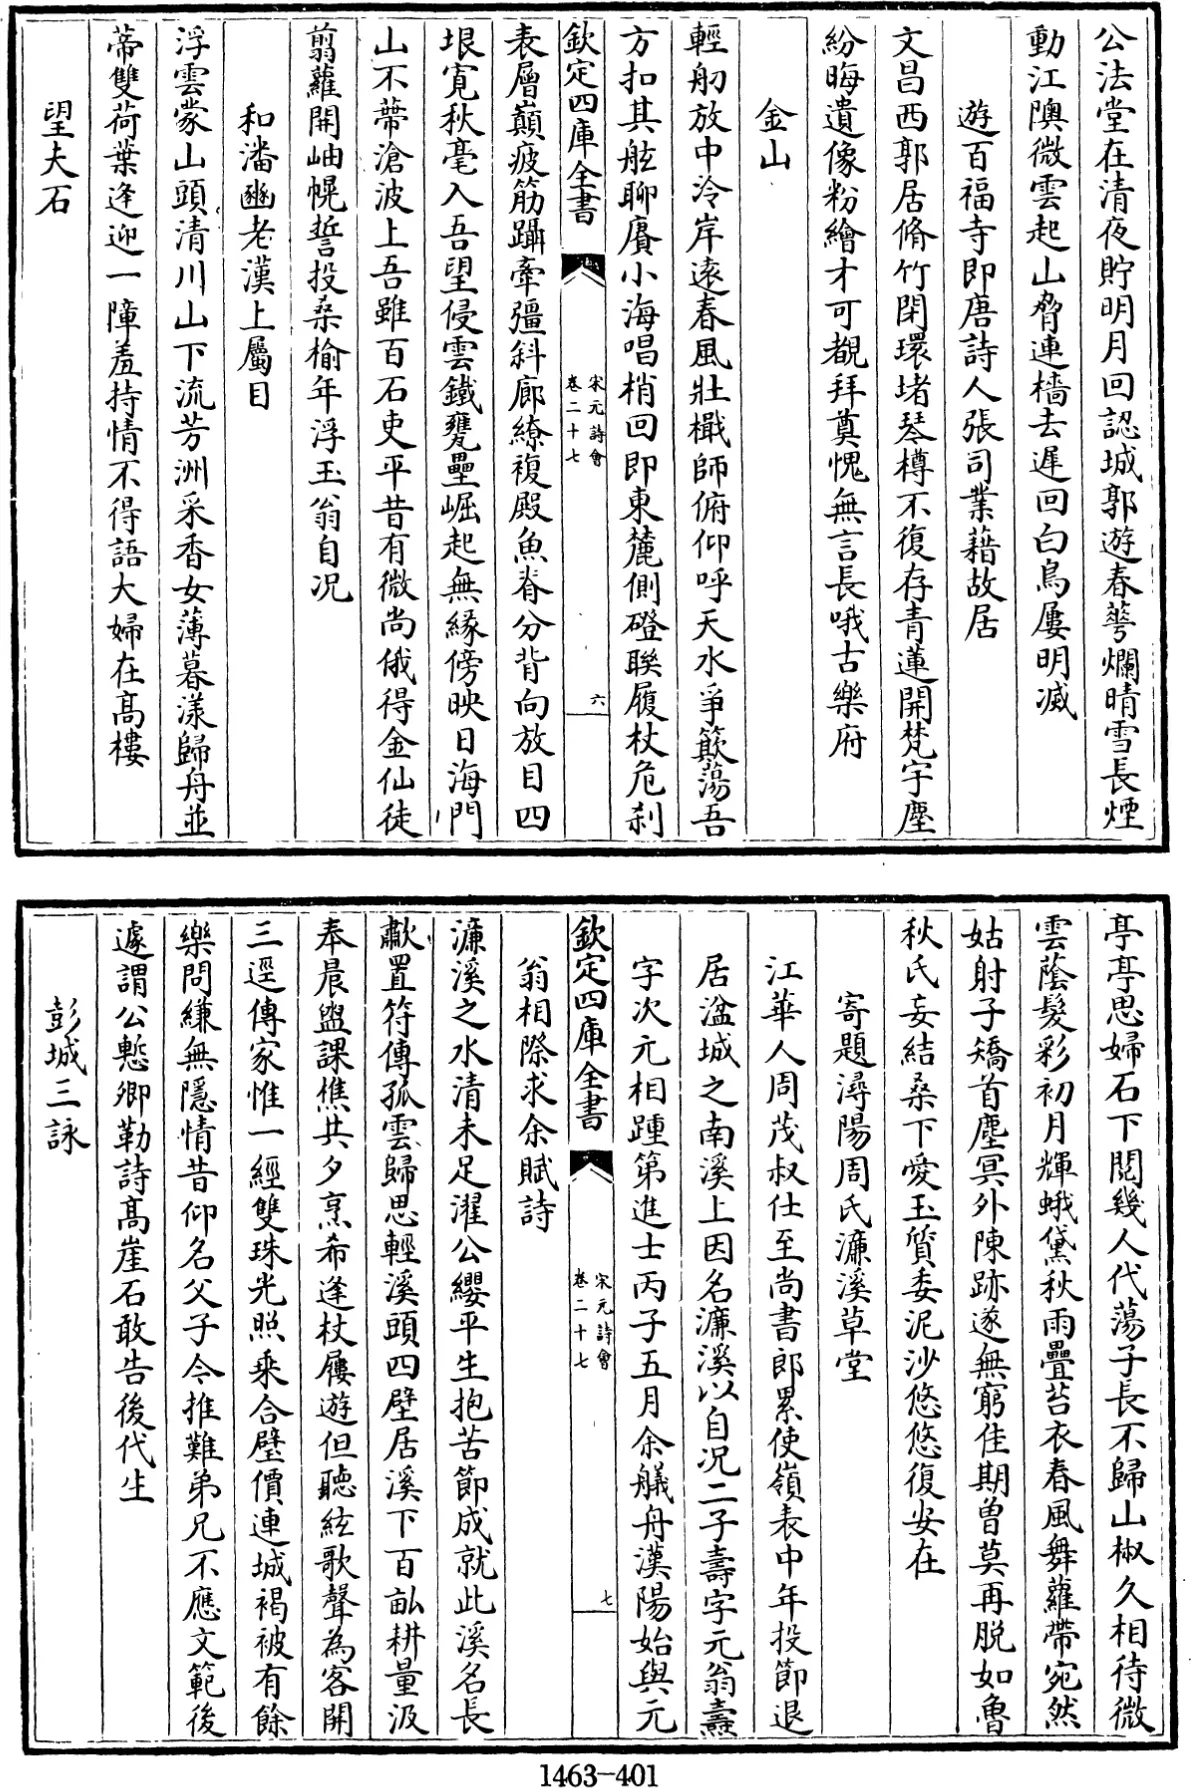 公法堂在清夜貯明月回認城郭遊春蕚爛晴雪長煙
動江隩微雲起山脅連檣去遲回白鳥屢明滅
遊百福寺即唐詩人張司業藉故居
文昌西郭居脩竹閉環堵琴樽不復存青蓮開梵宇塵
紛晦遺像粉繪才可覩拜奠愧無言長哦古樂府
金山
輕舠放中泠岸遠春風壯檝師俯仰呼天水爭簸蕩吾
方扣其舷聊賡小海唱梢回即東麓側磴聯履杖危刹
欽定四庫全書
宋元詩會
卷二十七
六
表層巔疲筋躡牽彊斜廊繚複殿魚脊分背向放目四
垠寛秋毫入吾望侵雲鐵甕壘崛起無緣傍映日海門
山不帶滄波上吾雖百石吏平昔有微尚俄得金仙徒
翦蘿開岫幌誓投桑榆年浮玉翁自况
和潘豳老漢上屬目
浮雲蒙山頭清川山下流芳洲采香女薄暮漾歸舟並
蒂雙荷葉逢迎一障羞持情不得語大婦在髙樓
望夫石
亭亭思婦石下閲幾人代蕩子長不歸山椒久相待微
雲蔭髮彩初月輝蛾黛秋雨疊苔衣春風舞蘿帶宛然
姑射子矯首塵冥外陳跡遂無窮佳期曽莫再脱如魯
秋氏妄結桑下愛玉質委泥沙悠悠復安在
寄題潯陽周氏濂溪草堂
江華人周茂叔仕至尚書郎累使嶺表中年投節退
居湓城之南溪上因名濂溪以自况二子壽字元翁燾
字次元相踵第進士丙子五月余艤舟漢陽始與元
欽定四庫全書
宋元詩會
卷二十七
七
翁相際求余賦詩
濂溪之水清未足濯公纓平生抱苦節成就此溪名長
歗置符傳孤雲歸思輕溪頭四壁居溪下百畝耕量汲
奉晨盥課樵共夕烹希逢杖屨遊但聽絃歌聲為客開
三逕傳家惟一經雙珠光照乘合璧價連城褐被有餘
樂問縑無隱情昔仰名父子今推難弟兄不應文範後
遽謂公慙卿勒詩髙崖石敢告後代生
彭城三詠
1463—401